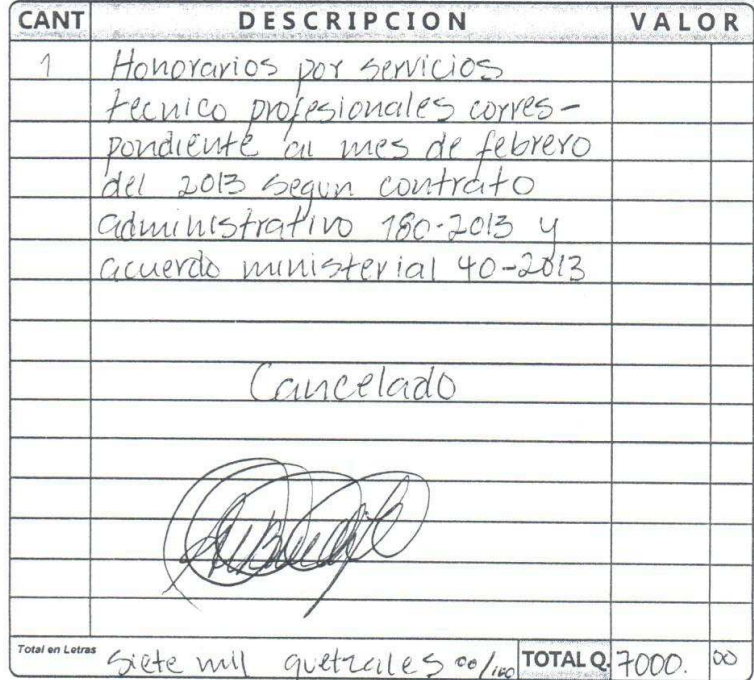 CANT DESCRIPCION VALOR
1 Honorarios por servicios
tecnico profesionales corres-
pondiente al mes de febrero
del 2013 segun contrato
administrativo 180-2013 y
acuerdo ministerial 40-2013
Cancelado
Total en Letras Siete mil quetzales 00/100 TOTAL Q. 7000. 00